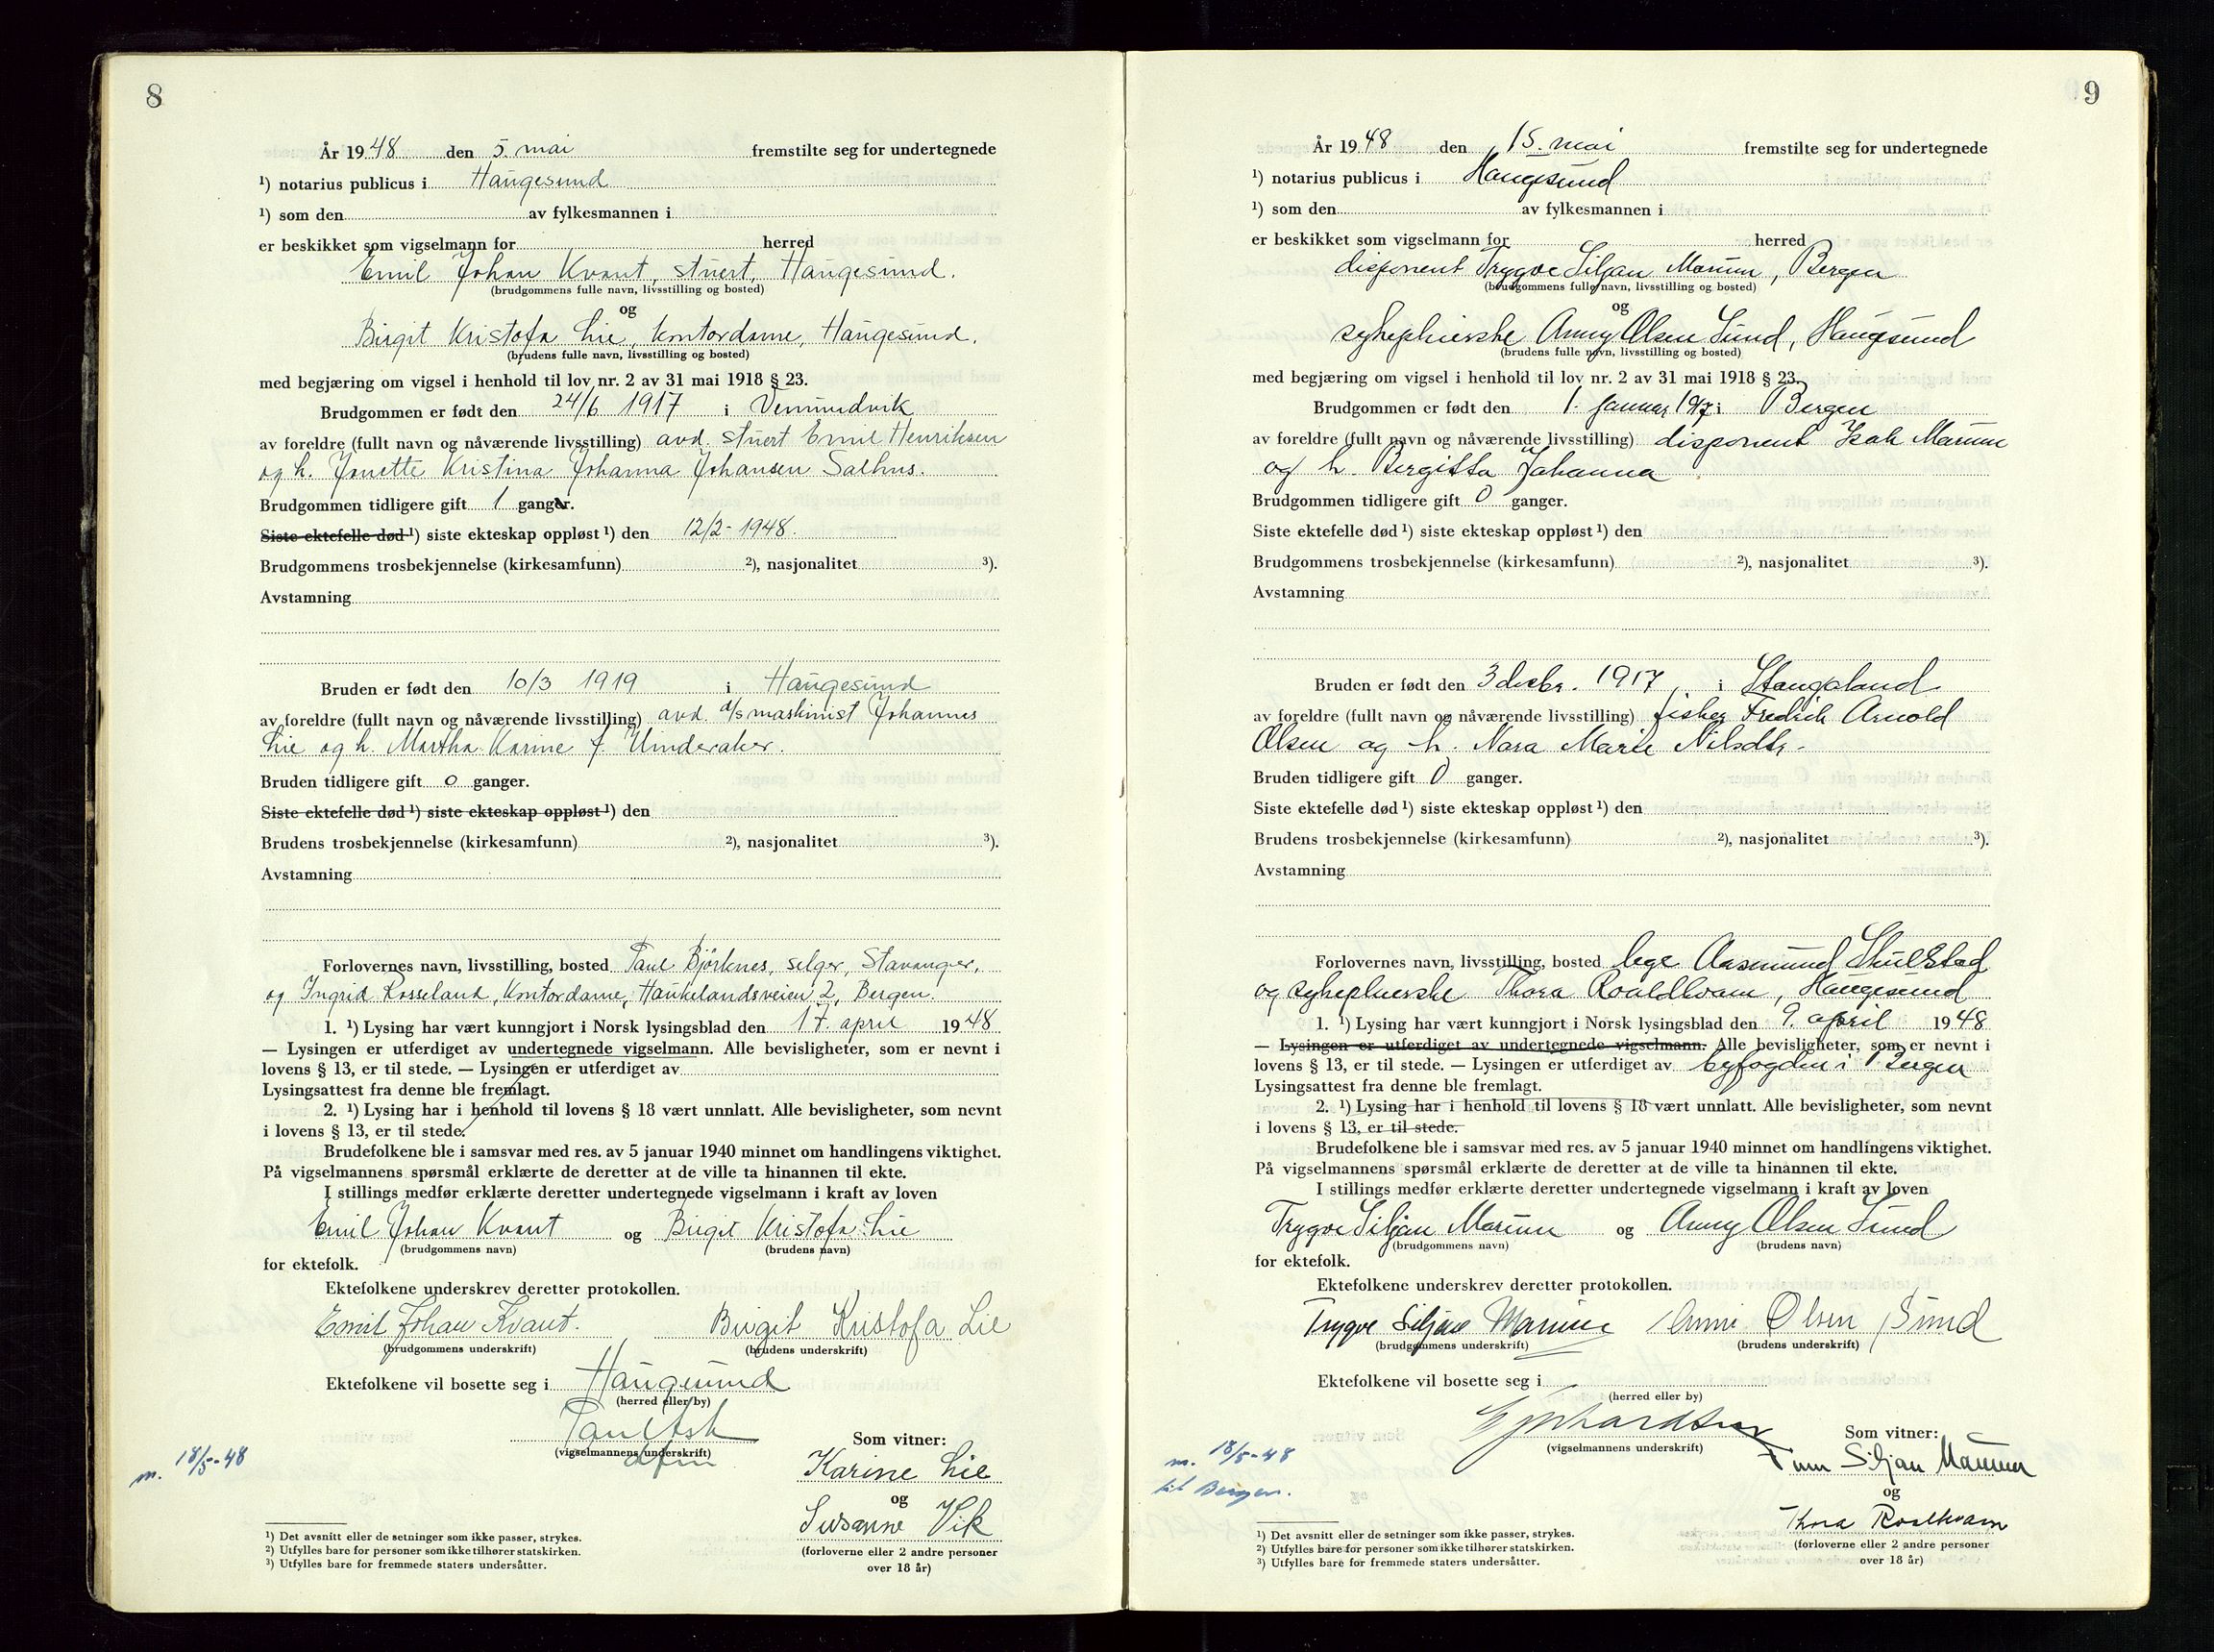 8
År 1948 den 5. mai fremstilte seg for undertegnede
¹) notarius publicus i Haugesund
¹) som den av fylkesmannen i
er beskikket som vigselmann for herred
Emil Johan Kvant, stuert, Haugesund.
(brudgommens fulle navn, livsstilling og bosted)
og
Birgit Kristofa Lie, kontordame, Haugesund.
(brudens fulle navn, livsstilling og bosted)
med begjæring om vigsel i henhold til lov nr. 2 av 31 mai 1918 § 23.
Brudgommen er født den 24/6 1917 i Vemundvik
av foreldre (fullt navn og nåværende livsstilling) avd. stuert Emil Henriksen
og h. Jonette Kristina Johanna Johansen Salhus.
Brudgommen tidligere gift 1 ganger.
Siste ektefelle død ¹) siste ekteskap oppløst ¹) den 12/2-1948.
Brudgommens trosbekjennelse (kirkesamfunn) ²), nasjonalitet ³).
Avstamning
Bruden er født den 10/3 1919 i Haugesund
av foreldre (fullt navn og nåværende livsstilling) avd. d/s maskinist Johannes
Lie og h. Martha Karine f. Underaker.
Bruden tidligere gift 0 ganger.
Siste ektefelle død ¹) siste ekteskap oppløst ¹) den
Brudens trosbekjennelse (kirkesamfunn) ²), nasjonalitet ³).
Avstamning
Forlovernes navn, livsstilling, bosted Paul Björknes, selger, Stavanger,
og Ingrid Rosseland, kontordame, Haukelandsveien 2, Bergen.
1. ¹) Lysing har vært kunngjort i Norsk lysingsblad den 17. april 1948
— Lysingen er utferdiget av undertegnede vigselmann. Alle bevisligheter, som er nevnt i
lovens § 13, er til stede. — Lysingen er utferdiget av
Lysingsattest fra denne ble fremlagt.
2. ¹) Lysing har i henhold til lovens § 18 vært unnlatt. Alle bevisligheter, som nevnt
i lovens § 13, er til stede.
Brudefolkene ble i samsvar med res. av 5 januar 1940 minnet om handlingens viktighet.
På vigselmannens spørsmål erklærte de deretter at de ville ta hinannen til ekte.
I stillings medfør erklærte deretter undertegnede vigselmann i kraft av loven
Emil Johan Kvant og Birgit Kristofa Lie
(brudgommens navn) (brudens navn)
for ektefolk.
Ektefolkene underskrev deretter protokollen.
Emil Johan Kvant. Birgit Kristofa Lie
(brudgommens underskrift) (brudens underskrift)
Ektefolkene vil bosette seg i Haugesund
(herred eller by)
(vigselmannens underskrift)
Som vitner:
m. 18/5-48
Karine Lie
og
Susanne Vik
(forloverne eller 2 andre personer
over 18 år)
¹) Det avsnitt eller de setninger som ikke passer, strykes.
²) Utfylles bare for personer som ikke tilhører statskirken.
³) Utfylles bare for fremmede staters undersåtter.
9
År 1948 den 15. mai fremstilte seg for undertegnede
¹) notarius publicus i Haugesund
¹) som den av fylkesmannen i
er beskikket som vigselmann for herred
disponent Trygve Siljan Marum, Bergen
(brudgommens fulle navn, livsstilling og bosted)
og
sykepleierske Anny Olsen Sund, Haugesund
(brudens fulle navn, livsstilling og bosted)
med begjæring om vigsel i henhold til lov nr. 2 av 31 mai 1918 § 23.
Brudgommen er født den 1. januar i Bergen
av foreldre (fullt navn og nåværende livsstilling) disponent Isak Marum
og h. Bergitta Johanna
Brudgommen tidligere gift 0 ganger.
Siste ektefelle død ¹) siste ekteskap oppløst ¹) den
Brudgommens trosbekjennelse (kirkesamfunn) ²), nasjonalitet ³).
Avstamning
Bruden er født den 3 decbr. 1917 i Stangaland
av foreldre (fullt navn og nåværende livsstilling) fisker Fredrik Arnold
Olsen og h. Nora Marie Nilsdtr.
Bruden tidligere gift 0 ganger.
Siste ektefelle død ¹) siste ekteskap oppløst ¹) den
Brudens trosbekjennelse (kirkesamfunn) ²), nasjonalitet ³).
Avstamning
Forlovernes navn, livsstilling, bosted lege Aasmund Skulstad
og sykepleierske Thora Roaldkvam, Haugesund
1. ¹) Lysing har vært kunngjort i Norsk lysingsblad den 9. april 1948
— Lysingen er utferdiget av undertegnede vigselmann. Alle bevisligheter, som er nevnt i
lovens § 13, er til stede. — Lysingen er utferdiget av byfogden i Bergen
Lysingsattest fra denne ble fremlagt.
2. ¹) Lysing har i henhold til lovens § 18 vært unnlatt. Alle bevisligheter, som nevnt
i lovens § 13, er til stede.
Brudefolkene ble i samsvar med res. av 5 januar 1940 minnet om handlingens viktighet.
På vigselmannens spørsmål erklærte de deretter at de ville ta hinannen til ekte.
I stillings medfør erklærte deretter undertegnede vigselmann i kraft av loven
Trygve Siljan Marum og Anny Olsen Sund
(brudgommens navn) (brudens navn)
for ektefolk.
Ektefolkene underskrev deretter protokollen.
Trygve Siljan Marum Anni Olsen Sund
(brudgommens underskrift) (brudens underskrift)
Ektefolkene vil bosette seg i
(herred eller by)
(vigselmannens underskrift)
Som vitner:
m. 18/5-48
til Bergen.
Siljan Marum
og
Thora Roaldkvam
(forloverne eller 2 andre personer
over 18 år)
¹) Det avsnitt eller de setninger som ikke passer, strykes.
²) Utfylles bare for personer som ikke tilhører statskirken.
³) Utfylles bare for fremmede staters undersåtter.